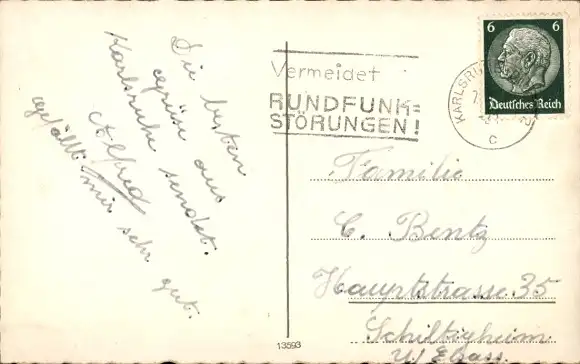 Die besten
Grüße aus
Karlsruhe sendet
Alfred
gefällt mir sehr gut.
Vermeidet
RUNDFUNK=
STÖRUNGEN!
6 6
Deutsches Reich
KARLSRUHE
c
Familie
C. Bentz
Hauptstrasse 35
Schiltigheim
i/ Elsass.
13593